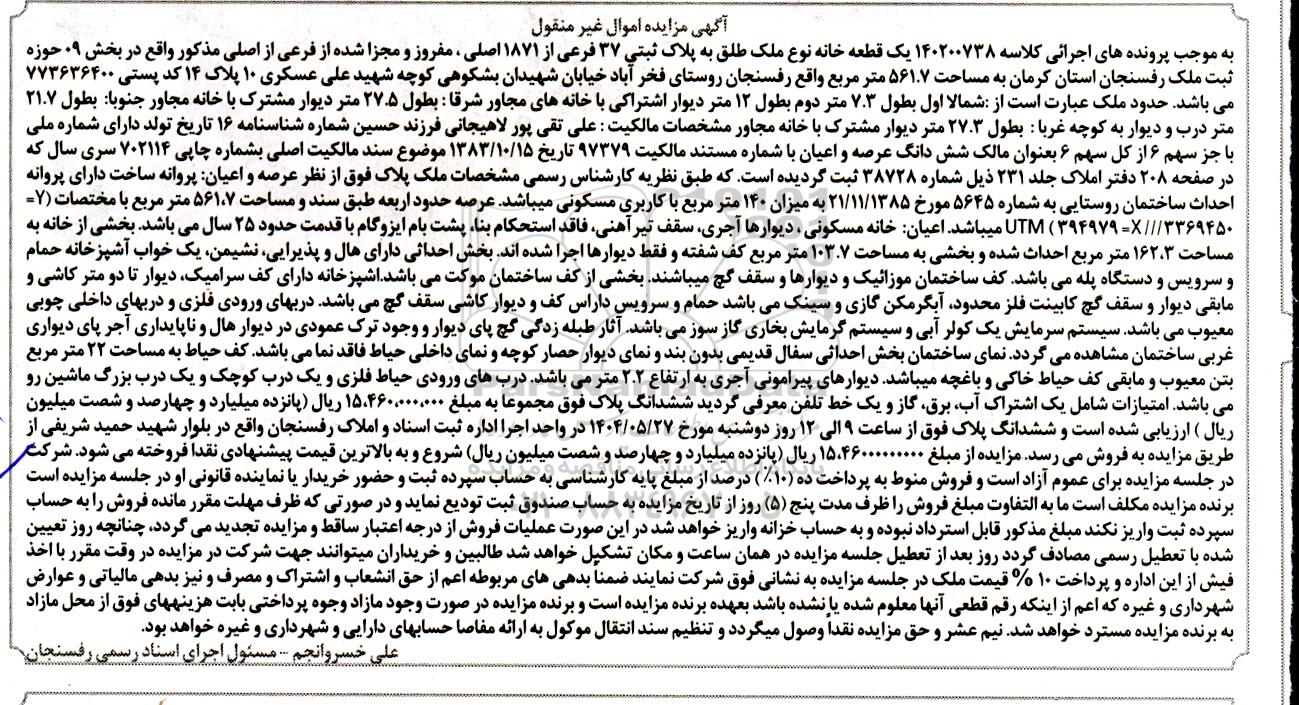 آگهی مزایده اموال غیر منقول
به موجب پرونده های اجرائی کلاسه ۱۴۰۲۰۰۷۳۸ یک قطعه خانه نوع ملک طلق به پلاک ثبتی ۳۷ فرعی از ۱۸۷۱ اصلی ، مفروز و مجزا شده از فرعی از اصلی مذکور واقع در بخش ۰۹ حوزه
ثبت ملک رفسنجان استان کرمان به مساحت ۵۶۱.۷ متر مربع واقع رفسنجان روستای فخر آباد خیابان شهیدان بشکوهی کوچه شهید علی عسکری ۱۰ پلاک ۱۴ کد پستی ۷۷۳۶۳۶۴۰۰
می باشد. حدود ملک عبارت است از :شمالا اول بطول ۷.۳ متر دوم بطول ۱۲ متر دیوار اشتراکی با خانه های مجاور شرقا : بطول ۲۷.۵ متر دیوار مشترک با خانه مجاور جنوبا: بطول ۲۱.۷
متر درب و دیوار به کوچه غربا : بطول ۲۷.۳ متر دیوار مشترک با خانه مجاور مشخصات مالکیت : علی تقی پور لاهیجانی فرزند حسین شماره شناسنامه ۱۶ تاریخ تولد دارای شماره ملی
با جز سهم ۶ از کل سهم ۶ بعنوان مالک شش دانگ عرصه و اعیان با شماره مستند مالکیت ۹۷۳۷۹ تاریخ ۱۳۸۳/۱۰/۱۵ موضوع سند مالکیت اصلی بشماره چاپی ۷۰۲۱۱۴ سری سال که
در صفحه ۲۰۸ دفتر املاک جلد ۲۳۱ ذیل شماره ۳۸۷۲۸ ثبت گردیده است. که طبق نظریه کارشناس رسمی مشخصات ملک پلاک فوق از نظر عرصه و اعیان: پروانه ساخت دارای پروانه
احداث ساختمان روستایی به شماره ۵۶۴۵ مورخ ۲۱/۱۱/۱۳۸۵ به میزان ۱۴۰ متر مربع با کاربری مسکونی میباشد. عرصه حدود اربعه طبق سند و مساحت ۵۶۱.۷ متر مربع با مختصات (Y=
۳۳۶۹۴۵۰///X= ۳۹۴۹۷۹ ) UTM میباشد. اعیان: خانه مسکونی ، دیوارها آجری، سقف تیر آهنی، فاقد استحکام بنا، پشت بام ایزوگام با قدمت حدود ۲۵ سال می باشد. بخشی از خانه به
مساحت ۱۶۲.۳ متر مربع احداث شده و بخشی به مساحت ۱۰۳.۷ متر مربع کف شفته و فقط دیوارها اجرا شده اند. بخش احداثی دارای هال و پذیرایی، نشیمن، یک خواب آشپزخانه حمام
و سرویس و دستگاه پله می باشد. کف ساختمان موزائیک و دیوارها و سقف گچ میباشند. بخشی از کف ساختمان موکت می باشد.اشپزخانه دارای کف سرامیک، دیوار تا دو متر کاشی و
مابقی دیوار و سقف گچ کابینت فلز محدود، آبگرمکن گازی و سینک می باشد حمام و سرویس داراس کف و دیوار کاشی سقف گچ می باشد. دربهای ورودی فلزی و دربهای داخلی چوبی
معیوب می باشد. سیستم سرمایش یک کولر آبی و سیستم گرمایش بخاری گاز سوز می باشد. آثار طبله زدگی گچ پای دیوار و وجود ترک عمودی در دیوار هال و ناپایداری آجر پای دیواری
غربی ساختمان مشاهده می گردد. نمای ساختمان بخش احداثی سفال قدیمی بدون بند و نمای دیوار حصار کوچه و نمای داخلی حیاط فاقد نما می باشد. کف حیاط به مساحت ۲۲ متر مربع
بتن معیوب و مابقی کف حیاط خاکی و باغچه میباشد. دیوارهای پیرامونی آجری به ارتفاع ۲.۲ متر می باشد. درب های ورودی حیاط فلزی و یک درب کوچک و یک درب بزرگ ماشین رو
می باشد. امتیازات شامل یک اشتراک آب، برق، گاز و یک خط تلفن معرفی گردید ششدانگ پلاک فوق مجموعا به مبلغ ۱۵،۴۶۰،۰۰۰،۰۰۰ ریال (پانزده میلیارد و چهارصد و شصت میلیون
ریال ) ارزیابی شده است و ششدانگ پلاک فوق از ساعت ۹ الی ۱۲ روز دوشنبه مورخ ۱۴۰۴/۰۵/۲۷ در واحد اجرا اداره ثبت اسناد و املاک رفسنجان واقع در بلوار شهید حمید شریفی از
طریق مزایده به فروش می رسد. مزایده از مبلغ ۱۵.۴۶۰۰۰۰۰۰۰۰ ریال (پانزده میلیارد و چهارصد و شصت میلیون ریال) شروع و به بالاترین قیمت پیشنهادی نقداً فروخته می شود. شرکت
در جلسه مزایده برای عموم آزاد است و فروش منوط به پرداخت ده (۱۰٪) درصد از مبلغ پایه کارشناسی به حساب سپرده ثبت و حضور خریدار یا نماینده قانونی او در جلسه مزایده است
برنده مزایده مکلف است ما به التفاوت مبلغ فروش را ظرف مدت پنج (۵) روز از تاریخ مزایده به حساب صندوق ثبت تودیع نماید و در صورتی که ظرف مهلت مقرر مانده فروش را به حساب
سپرده ثبت واریز نکند مبلغ مذکور قابل استرداد نبوده و به حساب خزانه واریز خواهد شد در این صورت عملیات فروش از درجه اعتبار ساقط و مزایده تجدید می گردد، چنانچه روز تعیین
شده با تعطیل رسمی مصادف گردد روز بعد از تعطیل جلسه مزایده در همان ساعت و مکان تشکیل خواهد شد طالبین و خریداران میتوانند جهت شرکت در مزایده در وقت مقرر با اخذ
فیش از این اداره و پرداخت ۱۰ % قیمت ملک در جلسه مزایده به نشانی فوق شرکت نمایند ضمناً بدهی های مربوطه اعم از حق انشعاب و اشتراک و مصرف و نیز بدهی مالیاتی و عوارض
شهرداری و غیره که اعم از اینکه رقم قطعی آنها معلوم شده یا نشده باشد بعهده برنده مزایده است و برنده مزایده در صورت وجود مازاد وجوه پرداختی بابت هزینههای فوق از محل مازاد
به برنده مزایده مسترد خواهد شد. نیم عشر و حق مزایده نقداً وصول میگردد و تنظیم سند انتقال موکول به ارائه مفاصا حسابهای دارایی و شهرداری و غیره خواهد بود.
علی خسروانجم -- مسئول اجرای اسناد رسمی رفسنجان